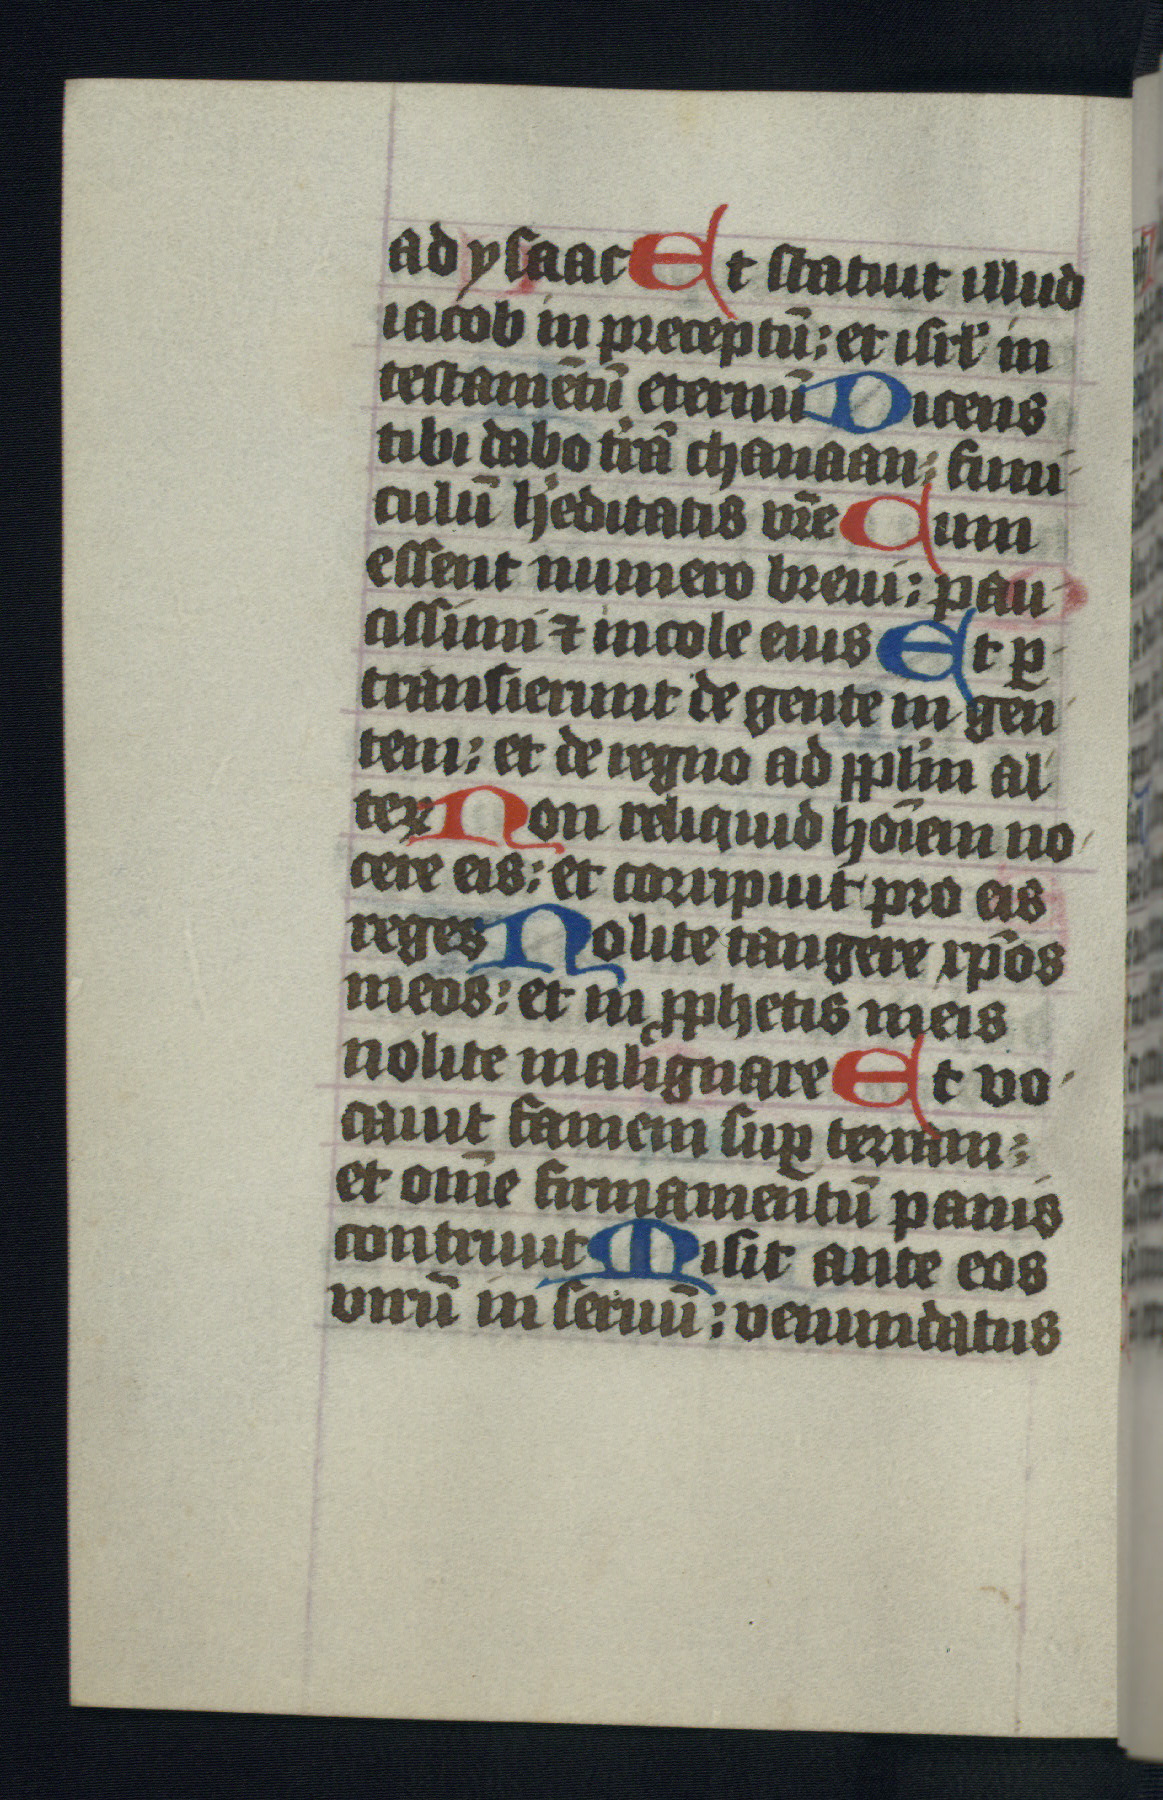 ad ysaac Et statuit illud
iacob in preceptū: et isrl' in
testamētū eternū Dicens
tibi dabo t'rā chanaan: funi
culū h'editatis vr̄e Cum
essent numero breui: pau
cissimi ⁊ incole eius Et ꝑ
transierunt de gente in gen
tem: et de regno ad pplm̄ al
terꝝ Non reliquid hoīem no
cere eis: et corripuit pro eis
reges Nolite tangere xp̄os
meos: et in ꝓphetis meis
nolite malignare Et vo
cauit famem suꝑ terram:
et om̄e firmamentū panis
contriuit Misit ante eos
virū in seruū: venundatus